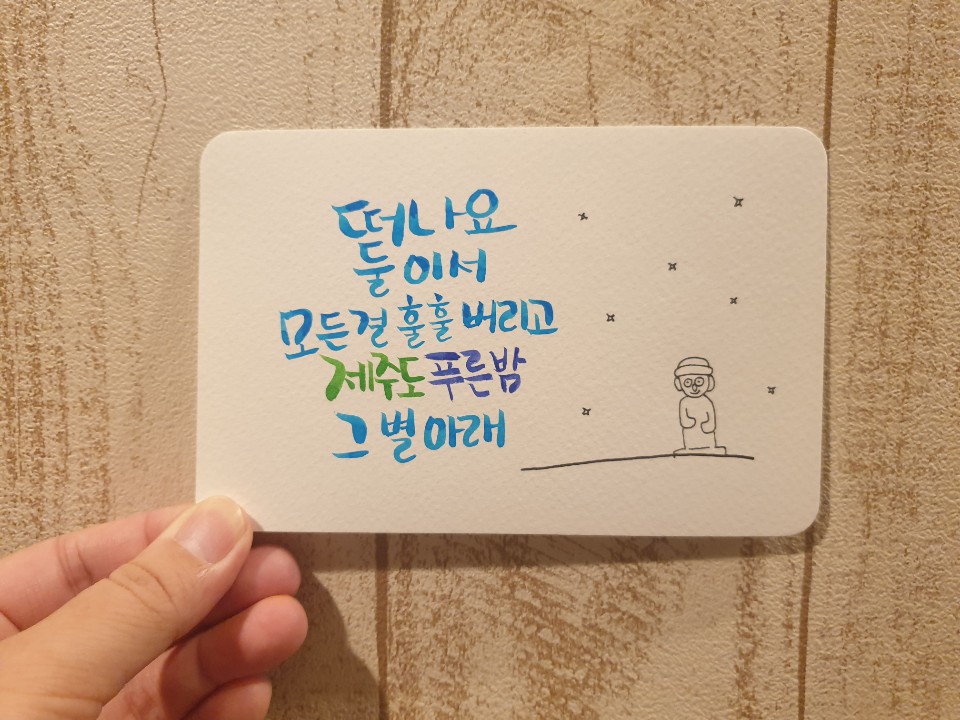 떠나요
둘이서
모든걸 훌훌 버리고
제주도 푸른밤
그 별 아래